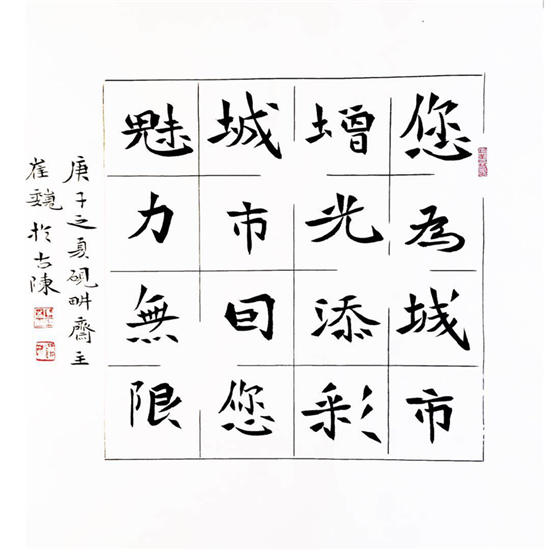 您為城市
增光添彩
城市囙您
魅力無限
庚子之夏硯畊齋主
崔巍於古陳